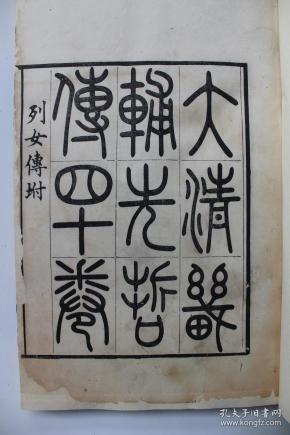 大清畿
輔先哲
傳四十卷
列女傳坿
孔夫子旧书网
www.kongfz.com